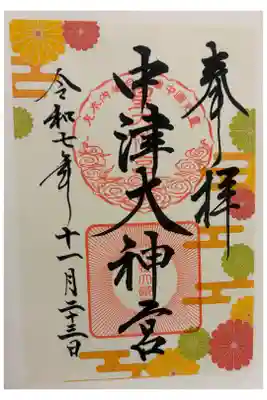 奉拝
中津大神宮
令和七年十一月二十三日